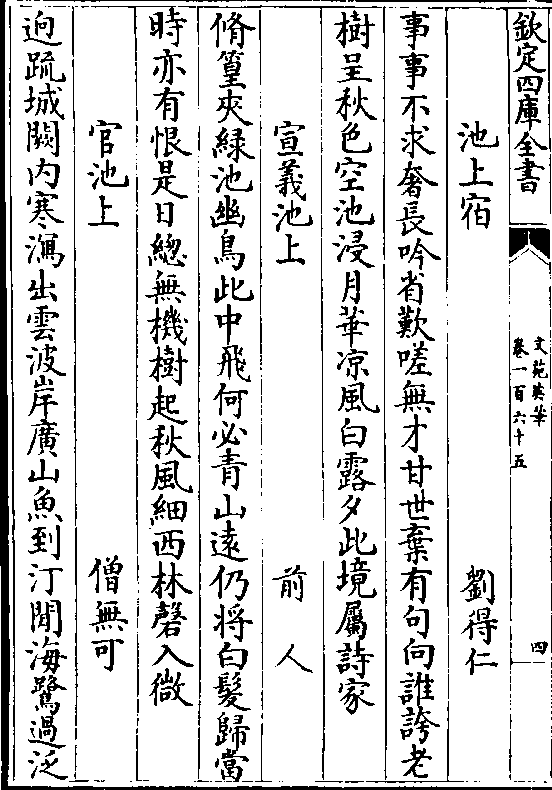 欽定四庫全書
文苑英華
卷一百六十五
四
池上宿
劉得仁
事事不求奢長吟省歎嗟無才甘世棄有句向誰誇老
樹呈秋色空池浸月華凉風白露夕此境屬詩家
宣義池上
前人
脩篁夾綠池幽鳥此中飛何必青山逺仍將白髮歸當
時亦有恨是日緫無機樹起秋風細西林磬入微
官池上
僧無可
逈疏城闕内寒瀉出雲波岸廣山魚到汀閒海鷺過泛